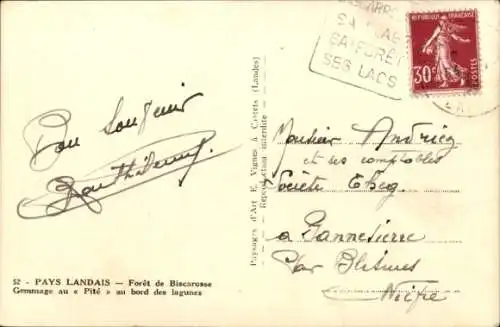 SA PLAGE
SA FORÊT
SES LACS
RÉPUBLIQUE FRANÇAISE
30c
POSTES
Bon Souvenir
Monsieur Andriez
et ses comptables
Société
à Bannesierre
Par Blismes
Nièvre
Paysages d'Art E. Vignes à Castets (Landes)
Reproduction interdite
52 - PAYS LANDAIS — Forêt de Biscarosse
Gemmage au « Pité » au bord des lagunes